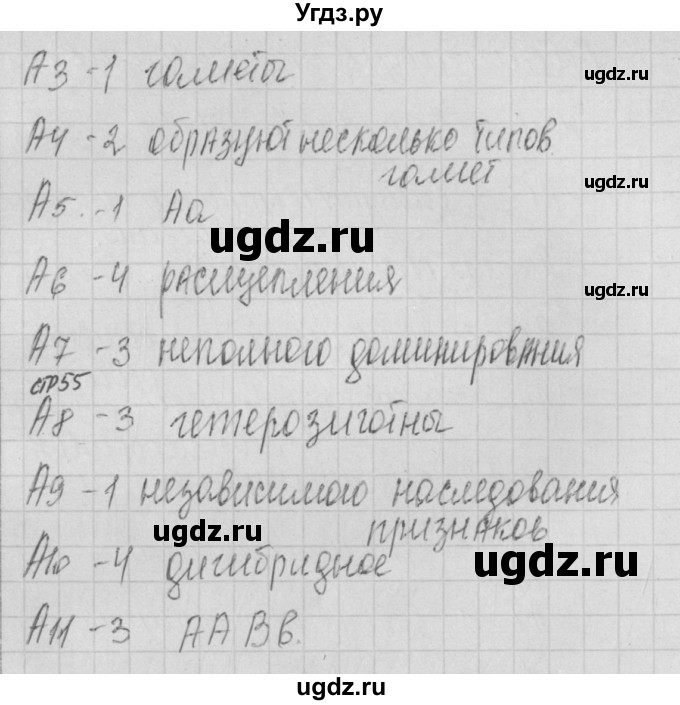 Угдз.ру
А3 -1 гаметы
ugdz.ru
А4 -2 образуют несколько типов
гамет
ugdz.ru
А5. -1 Аа
ugdz.ru
А6 -4 расщепления
ugdz.ru
А7 -3 неполного доминирования
стр55
А8 -3 гетерозиготны
ugdz.ru
А9 -1 независимого наследования
признаков
ugdz.ru
А10 -4 дигибридное
ugdz.ru
А11 -3 ААВв.
ugdz.ru
ugdz.ru